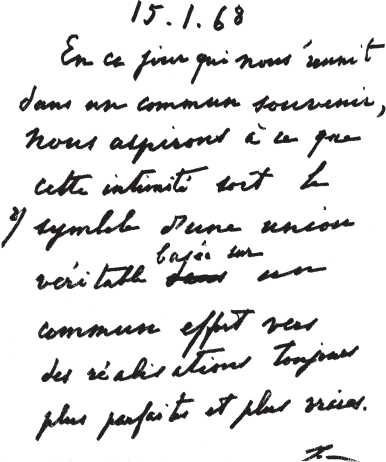 15.1.68
En ce jour qui nous réunit
dans un commun souvenir,
nous aspirons à ce que
cette intimité soit le
symbole d'une union
basée sur
véritable dans un
commun effort vers
des réalisations toujours
plus parfaites et plus vraies.